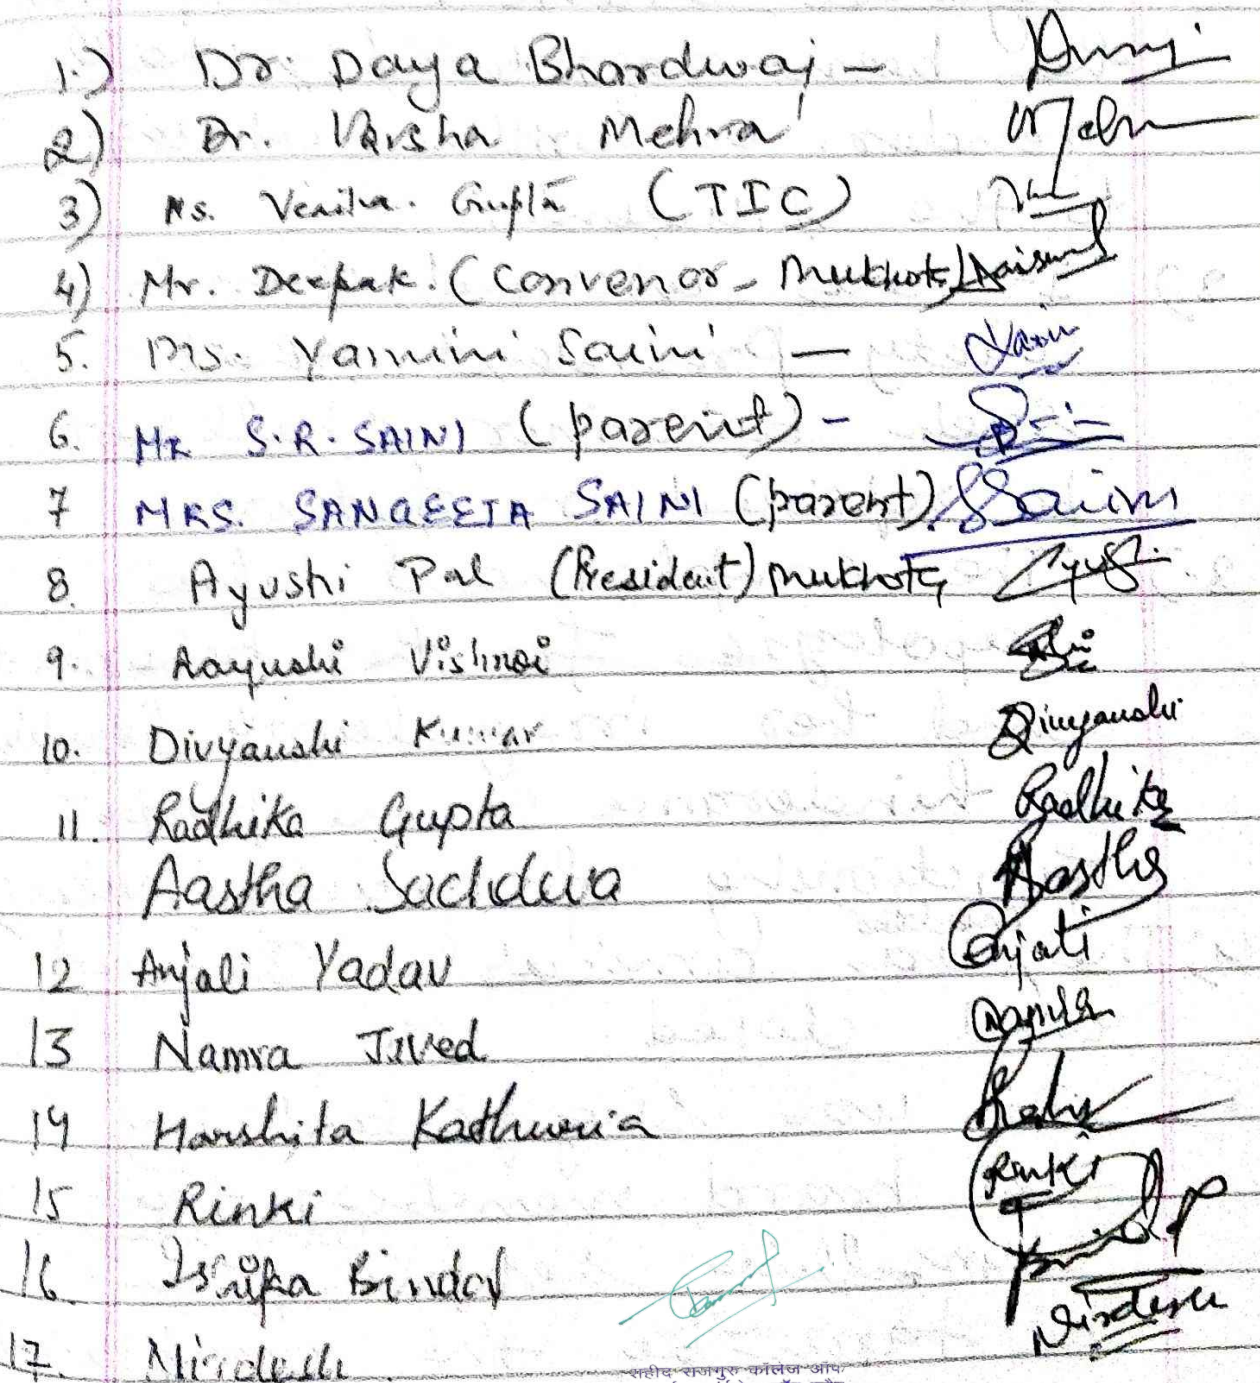 1.) Dr. Daya Bhardwaj -
2) Dr. Varsha Mehra
3) Ms. Gupta (TIC)
4) Mr. Deepak. (Convenor - Mukhota)
5. Ms. Yamini Saini - Yamini
6. MR S.R. SAINI (parent) -
7 MRS. SANGEETA SAINI (parent) SSaini
8. Ayushi Pal (President) Mukhota Ayushi
9. Aayushi Vishnoi
10. Divyanshi Kumar Divyanshi
11. Radhika Gupta Radhika
Aastha Sachdeva Aastha
12 Anjali Yadav Anjali
13 Namra Javed Namra
14 Harshita Kathuria
15 Rinki Rinki
16 Bindal
17. Nirdesh Nirdesh
शहीद राजगुरु कॉलेज ऑफ